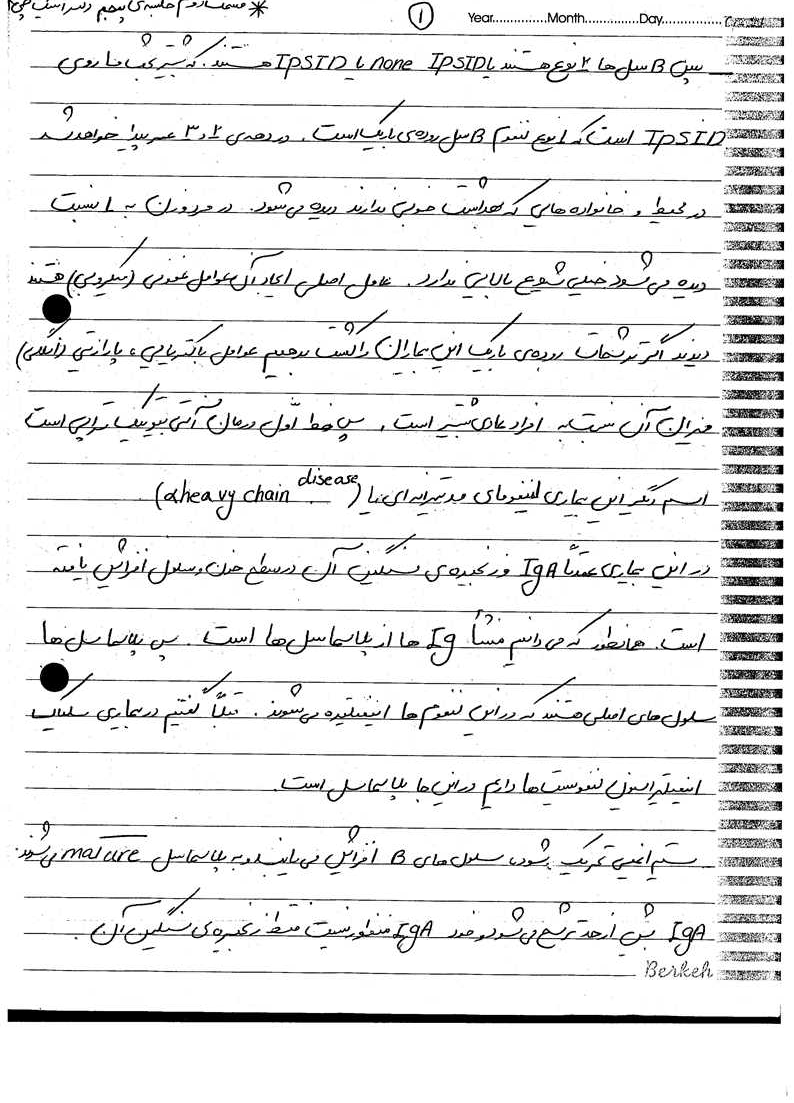 * قسمت دوم جلسه‌ی پنجم
① Year..............Month..............Day................
پس B سل ها ۲ نوع هستند یا IPSID یا none IPSID هستند. که بیشتر بحث ما روی
IPSID است که ۱ نوع لنفوم B سل روده‌ی باریک است. در دهه‌ی ۲ و ۳ عمر پیدا خواهد شد
در محیط و خانواده هایی که بهداشت خوبی ندارند دیده می‌شود. در مرد و زن به ۱ نسبت
دیده می شود خیلی شیوع بالایی ندارد. عامل اصلی ایجاد آن عوامل عفونی (میکروبی) هستند
دیدند اگر ترشحات روده‌ی باریک این بیماران را کشت بدهیم عوامل باکتریایی، پارازیتی (انگلی)
میزان آن نسبت به افراد عادی بیشتر است. پس خط اوّل درمان آنتی بیوتیک تراپی است
اسم دیگر این بیماری لنفومای مدیترانه ای یا (αheavy chain disease)
در این بیماری عمدتاً IgA و زنجیره‌ی سنگین آن در سطح خون و سلول افزایش یافته
است. همانطور که می دانیم منشأ Ig ها از پلاسماسل ها است. پس پلاسماسل ها
سلول های اصلی هستند که در این لنفوم ها اینفیلتره می شوند. قبلاً گفتیم در بیماری سلیاک
انفیلتراسیون لنفوسیت ها داریم در این جا پلاسماسل است.
سیستم ایمنی تحریک بشود، سلول های B افزایش می یابند و به پلاسماسل mature می شوند.
IgA بیش از حد ترشح می شود و خود IgA منظور نیست فقط زنجیره‌ی سنگین آن.
Berkeh